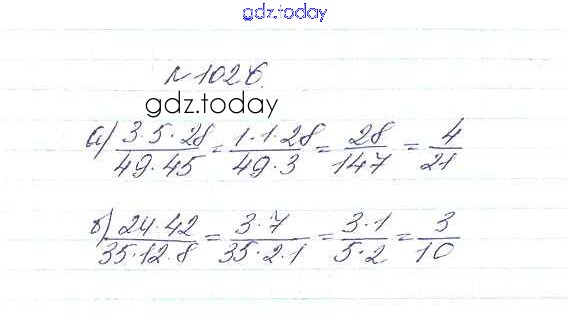 gdz.today
№1026.
gdz.today
а) 3·5·28/49·45 = 1·1·28/49·3 = 28/147 = 4/21
б) 24·42/35·12·8 = 3·7/35·2·1 = 3·1/5·2 = 3/10